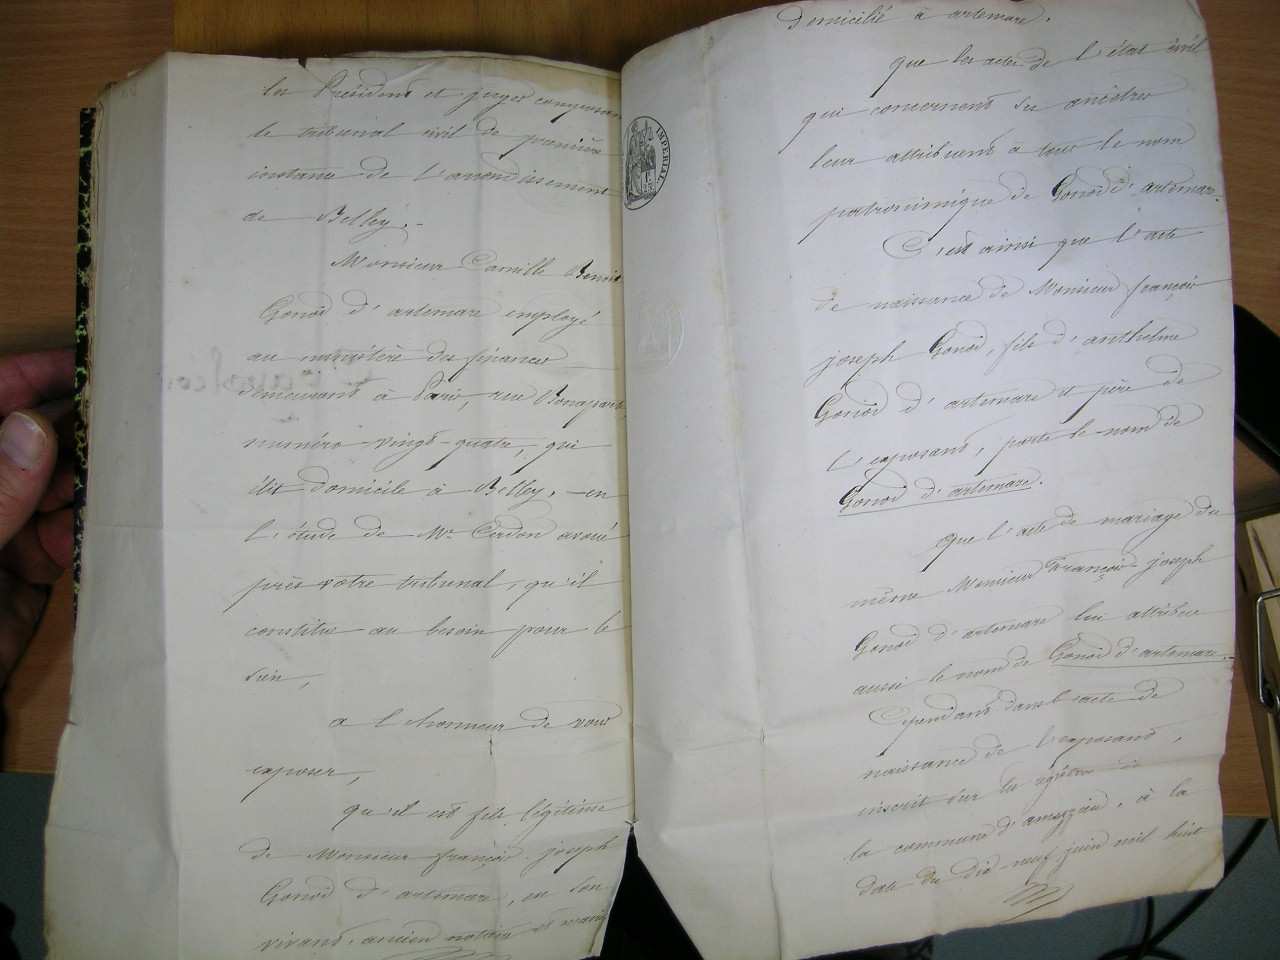 les Président et juges composant
le tribunal civil de première
instance de l'arrondissement
de Belley.-
Monsieur Camille Benoit
Gonod d'artemare employé
au ministère des finances
demeurant à Paris, rue Bonaparte
numéro vingt-quatre, qui
élit domicile à Belley, en
l'étude de Mr Cerdon avoué
près votre tribunal, qu'il
constitue au besoin pour le
sien,
a l'honneur de vous
exposer,
qu'il est fils légitime
de Monsieur françois joseph
Gonod d'artemare, en son
vivant, ancien notaire et maire
domicilié à artemare.
que les actes de l'état civil
qui concernent ses ancêtres
leur attribuent à tous le nom
patronimique de Gonod d'artemare.
C'est ainsi que l'acte
de naissance de Monsieur françois
joseph Gonod, fils d'anthelme
Gonod d'artemare et père de
l'exposant, porte le nom de
Gonod d'artemare.
que l'acte de mariage du
même Monsieur françois joseph
Gonod d'artemare lui attribue
aussi le nom de Gonod d'artemare.-
Cependant dans l'acte de
naissance de l'exposant,
inscrit sur les registres de
la commune d'ameyzieu, à la
date du dix-neuf juin mil huit
IMPERIAL